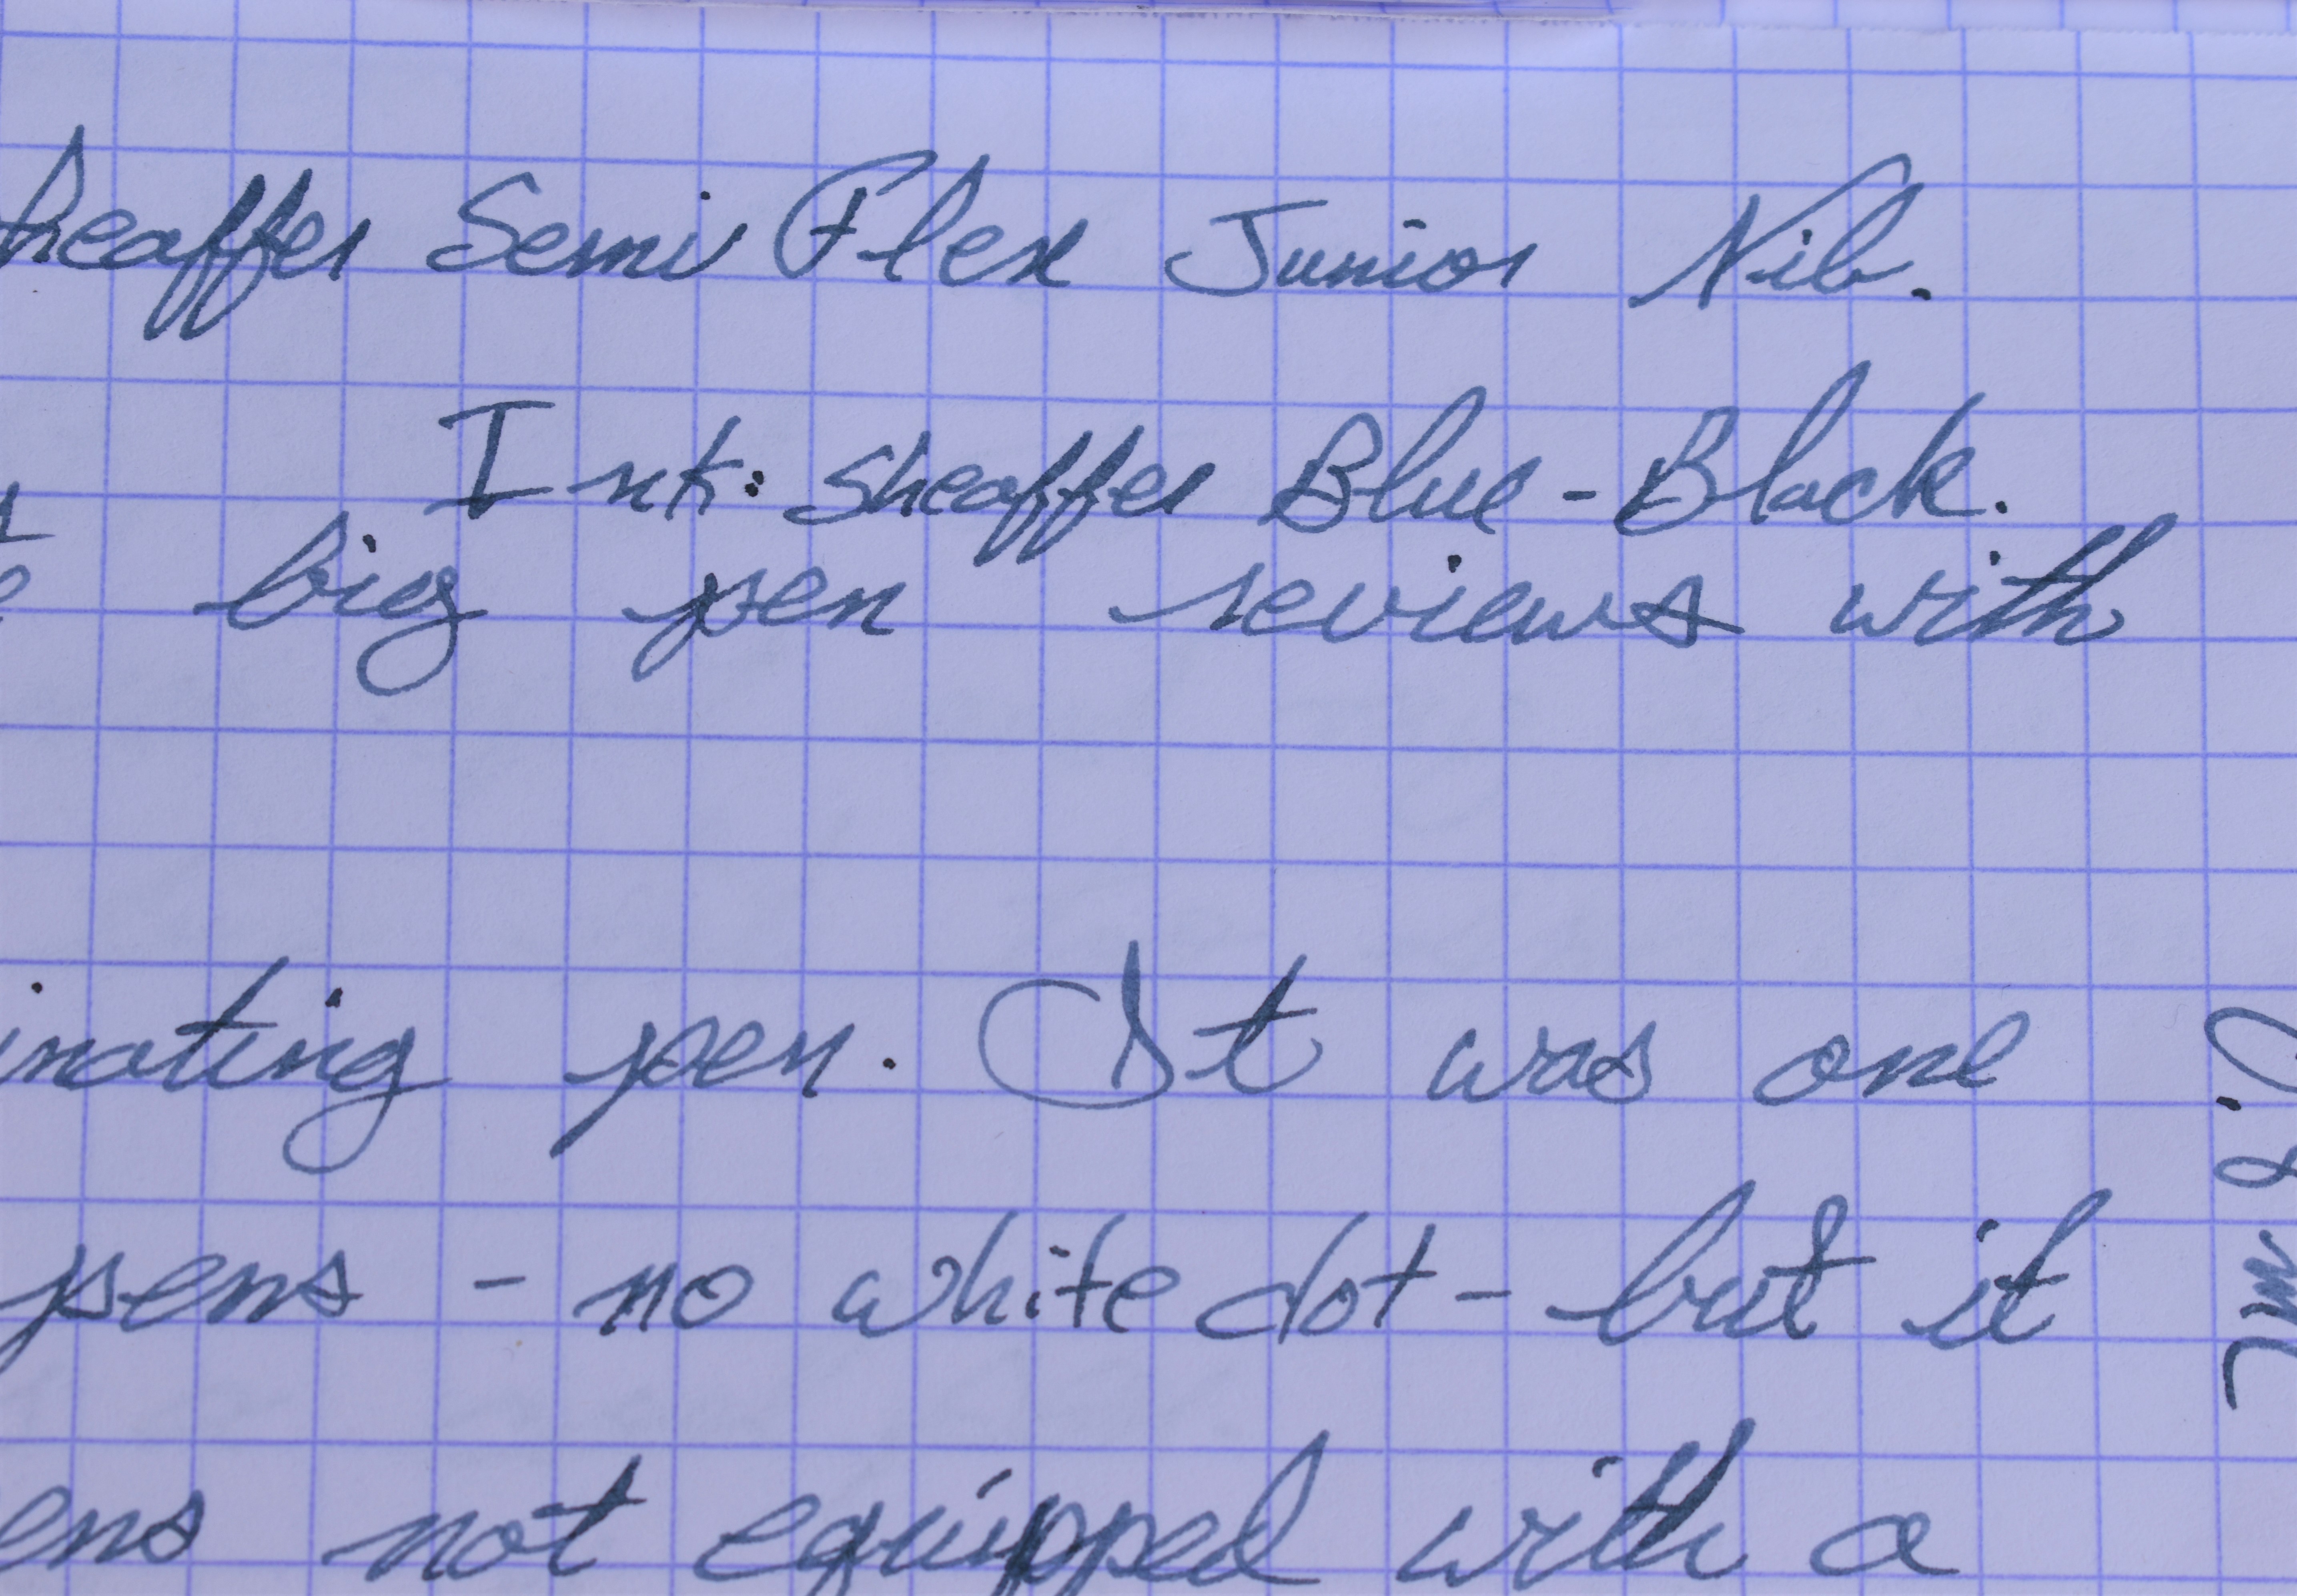 heaffer Semi Flex Junior Nib.
Ink: Sheaffer Blue-Black.
big pen reviews with
inating pen. It was one
pens - no white dot - but it
ens not equipped with a